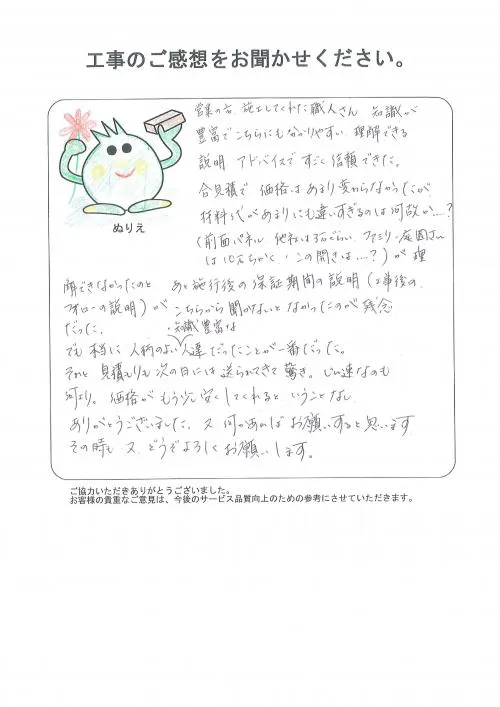 工事のご感想をお聞かせください。
営業の方、施工してくれた職人さん 知識が
豊富でこちらにもわかりやすい 理解できる
説明 アドバイスですごく信頼できた。
合見積で 価格はあまり変わらなかったが
材料代があまりにも違いすぎるのは何故か…?
(前面パネル 他社は3万ぐらい、ファミリー庭園さん
は10万ちかく、この開きは…?)が 理
ぬりえ
解できなかったのと あと施行後の保証期間の説明(工事後の
フォローの説明)が こちらから聞かないとなかったのが残念
だった。
・知識豊富な
でも 本当に 人柄のよい人達だったことが一番だった。
それと 見積もりも 次の日には送られてきて驚き。
何より。価格が もう少し安くしてくれると いうことなし
ありがとうございました。又 何かあれば お願いすると思います
その時も 又 どうぞよろしく お願いします。
ご協力いただきありがとうございました。
お客様の貴重なご意見は、今後のサービス品質向上のための参考にさせていただきます。